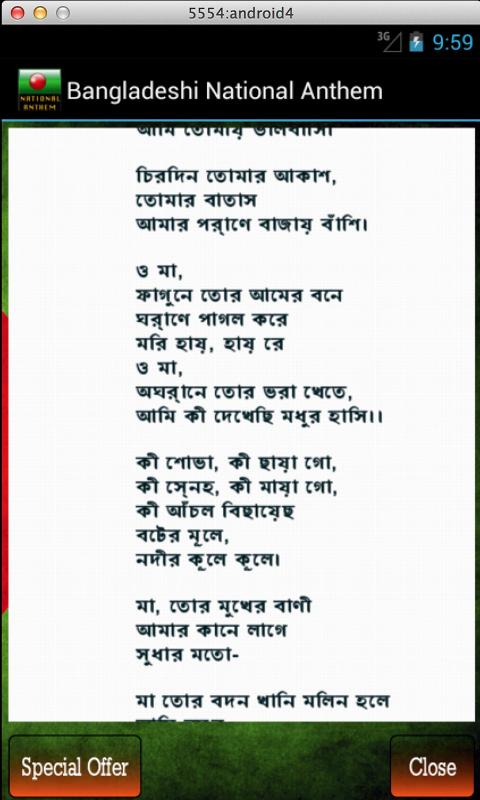 5554:android4
3G
9:59
NATIONAL
ANTHEM
Bangladeshi National Anthem
আমি তোমায় ভালবাসি।
চিরদিন তোমার আকাশ,
তোমার বাতাস
আমার পর্‌াণে বাজায় বাঁশি।
ও মা,
ফাগুনে তোর আমের বনে
ঘর্‌াণে পাগল করে
মরি হায়, হায় রে
ও মা,
অঘর্‌ানে তোর ভরা খেতে,
আমি কী দেখেছি মধুর হাসি।।
কী শোভা, কী ছায়া গো,
কী স্েনহ, কী মায়া গো,
কী আঁচল বিছায়েছ
বটের মূলে,
নদীর কূলে কূলে।
মা, তোর মুখের বাণী
আমার কানে লাগে
সুধার মতো-
মা তোর বদন খানি মলিন হলে
Special Offer
Close